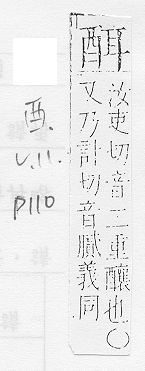 汝吏切音二重釀也〇
又乃計切音膩義同
酉.
V.11.
P110